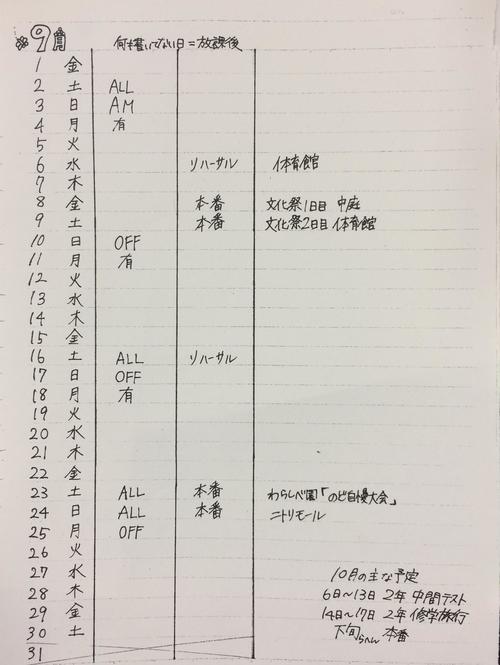 9月 何も書いてない日=放課後
1 金
2 土 ALL
3 日 AM
4 月 有
5 火
6 水 リハーサル 体育館
7 木
8 金 本番 文化祭1日目 中庭
9 土 本番 文化祭2日目 体育館
10 日 OFF
11 月 有
12 火
13 水
14 木
15 金
16 土 ALL リハーサル
17 日 OFF
18 月 有
19 火
20 水
21 木
22 金
23 土 ALL 本番 わらしべ園「のど自慢大会」
24 日 ALL 本番 ニトリモール
25 月 OFF
26 火
27 水
28 木
29 金
30 土
31
10月の主な予定
6日~13日 2年 中間テスト
14日~17日 2年 修学旅行
下旬らへん 本番